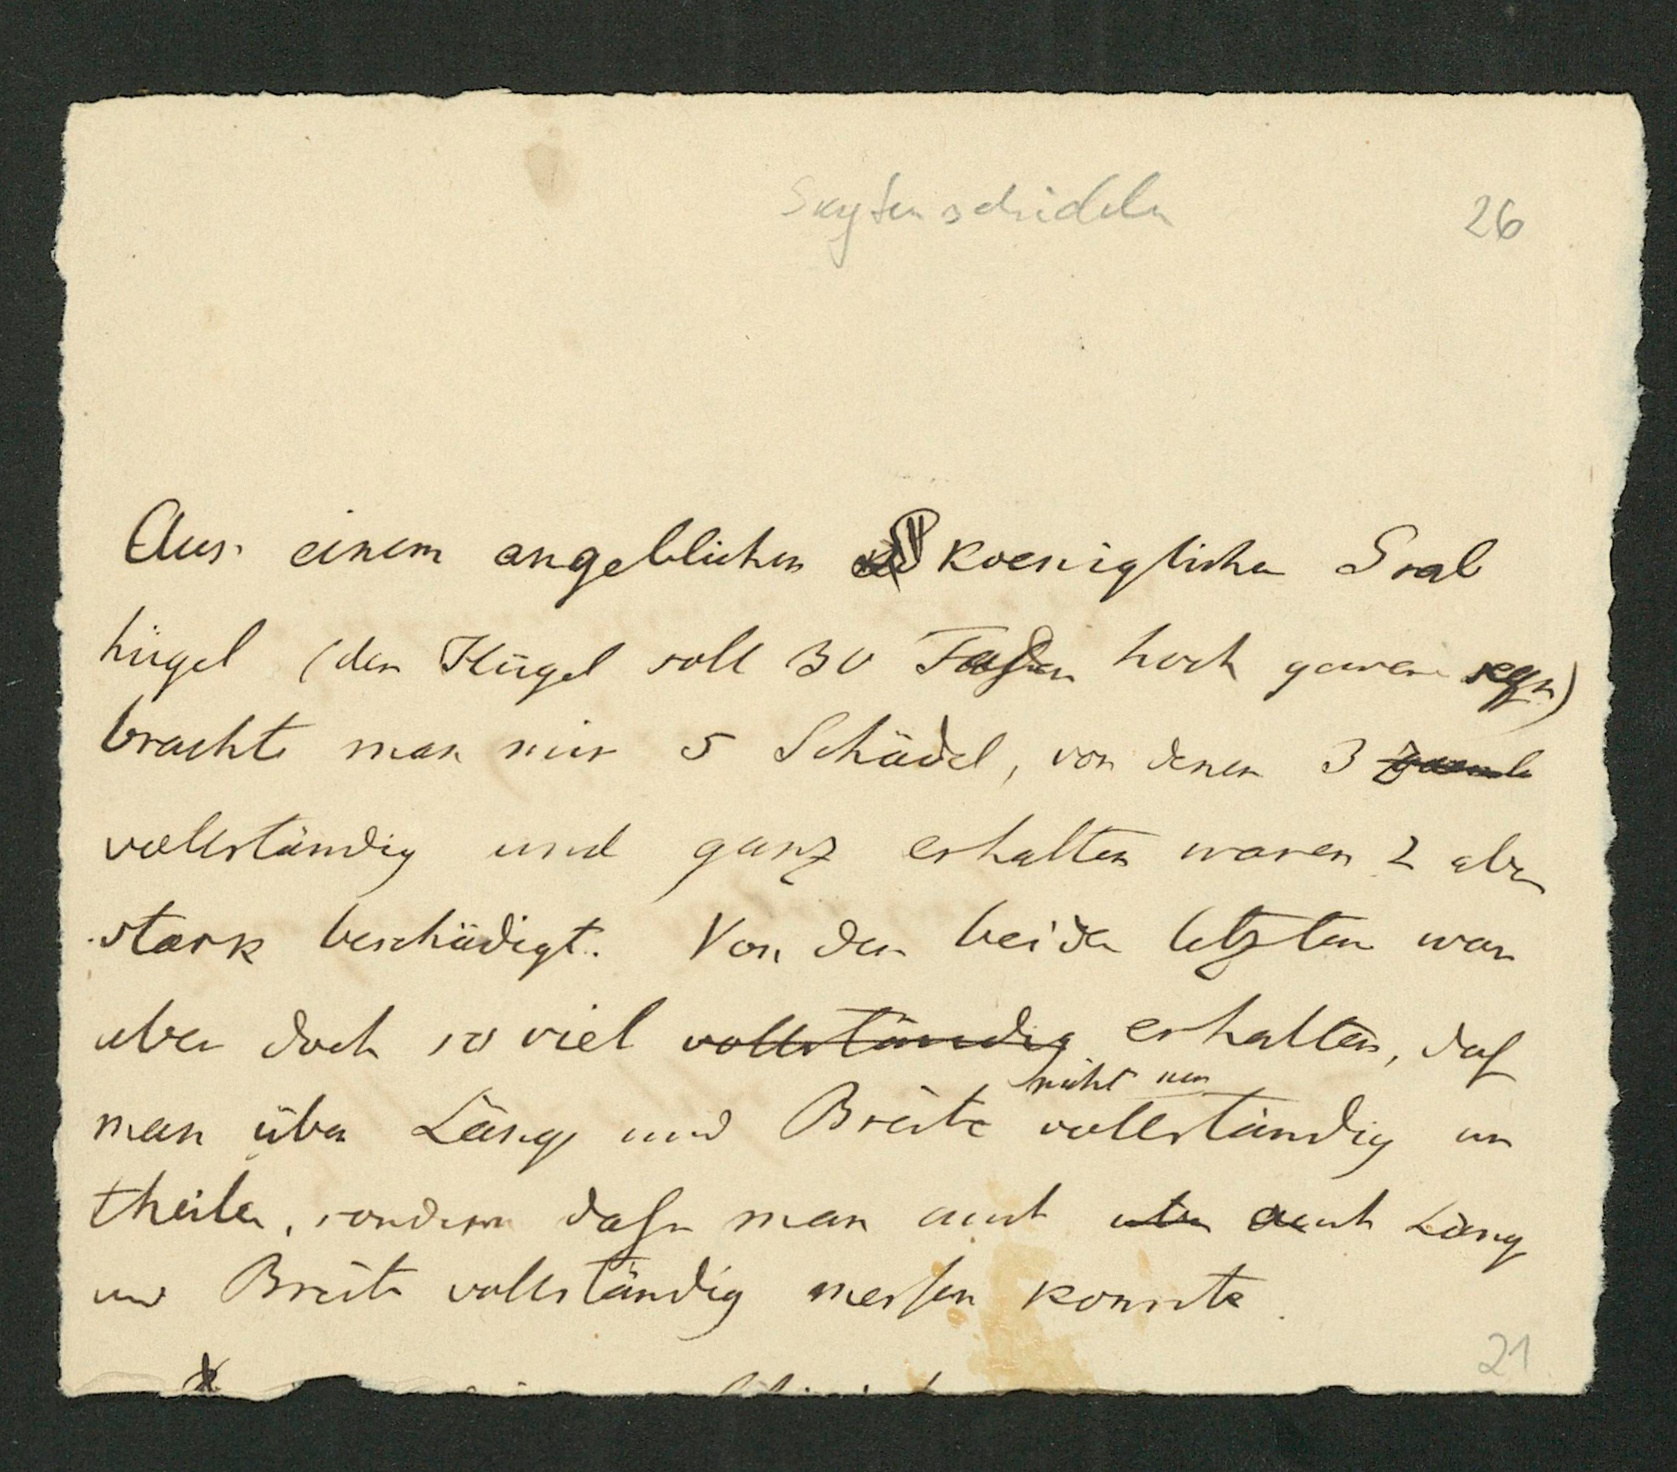 Skytenschädeln
26
Aus einem angeblichen koeniglichen Grab
hügel (der Hügel soll 30 Faden hoch gewesen seyn)
brachte man mir 5 Schädel, von denen 3
vollständig und ganz erhalten waren 2 aber
stark beschädigt. Von den beiden letzten war
aber doch so viel vollständig erhalten, daß
nicht nur
man über Länge und Breite vollständig ur
theilen, sondern daß man auch aber auch Länge
und Breite vollständig messen konnte.
21